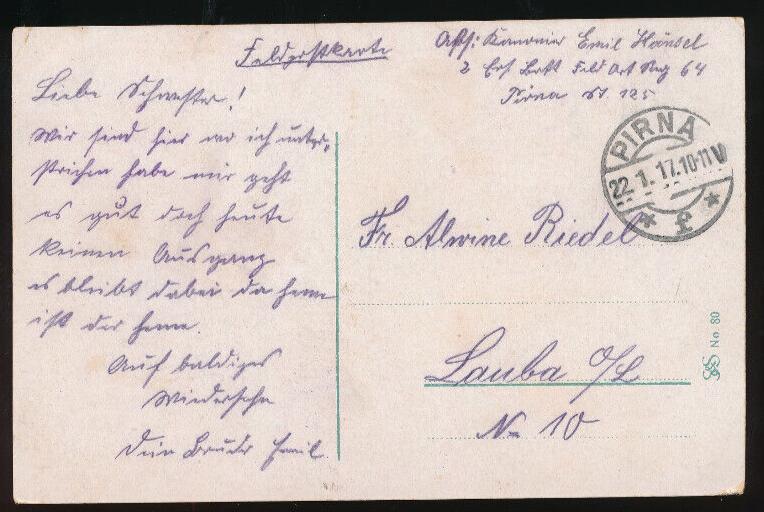 Feldpostkarte
Abs: Kanonier Emil Hänsel
2 Ers Batt Feld Art Reg 64
Pirna St. 125
Liebe Schwester!
Wir sind hier wo ich unter-
strichen habe mir geht
es gut doch heute
keinen Ausgang
es bleibt dabei
ist der
Auf baldiges
Wiedersehn
Dein Bruder Emil
PIRNA
22.1.17.10-11V
* f *
Fr. Alwine Riedel
Lauba O/L
No 10
No. 80